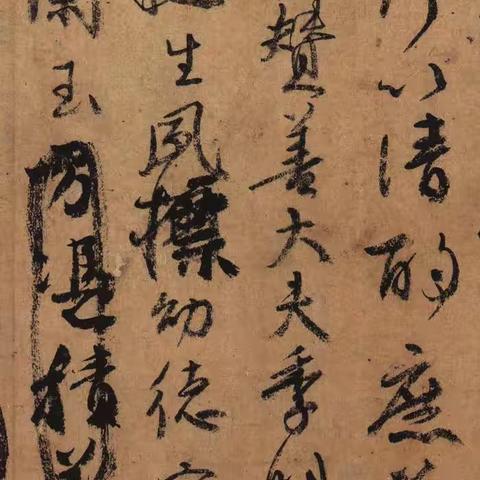 以清酌庶
贊善大夫季明
生夙標幼德
蘭玉方憑積善